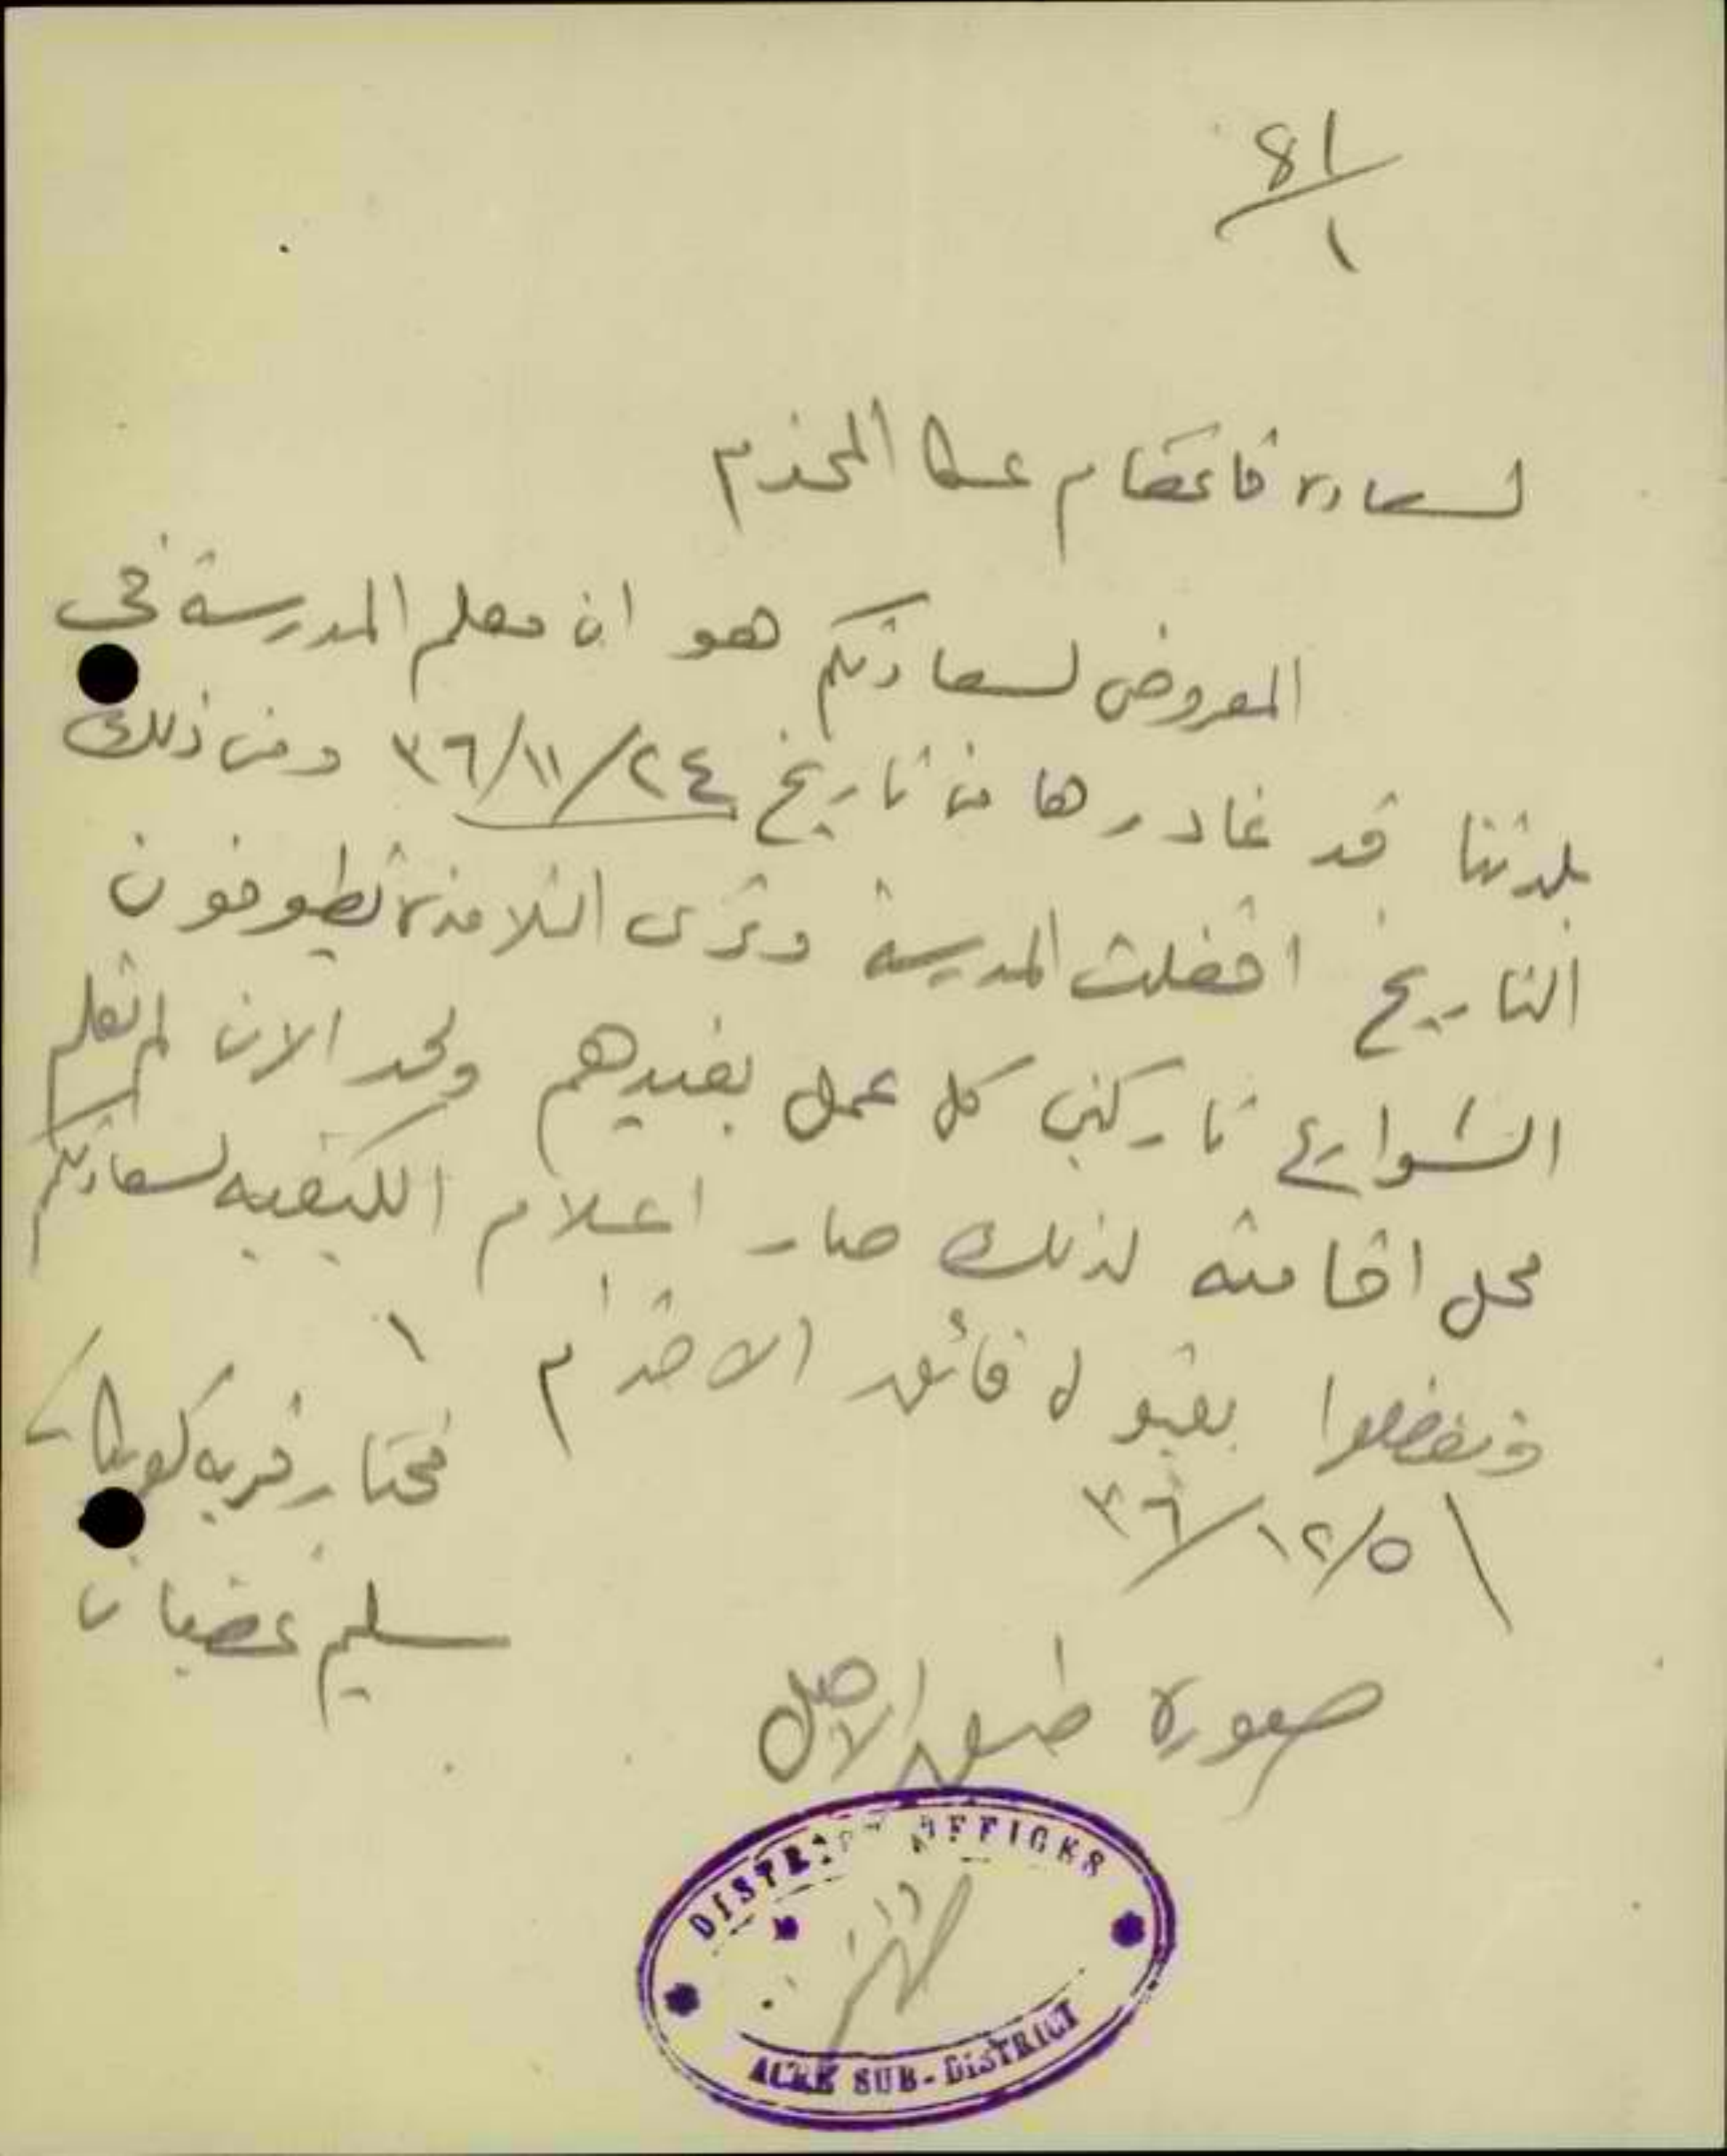 81
١
لسعادة قائمقام عكا المحترم
المعروض لسعادتكم هو ان معلم المدرسة في
بلدتنا قد غادرها من تاريخ ٣٦/١١/٢٤ ومن ذلك
التاريخ اقفلت المدرسة وترى التلامذة يطوفون
الشوارع تاركين كل عمل يفيدهم ولحد الان لم نعلم
محل اقامته لذلك صار اعلام الكيفيه لسعادتكم
وتفضلوا بقبول فائق الاحترام
٣٦/١٢/٥
مختار قريه كويكات
سليم غضبان
صورة طبق الاصل
DISTRICT OFFICES
ACRE SUB-DISTRICT